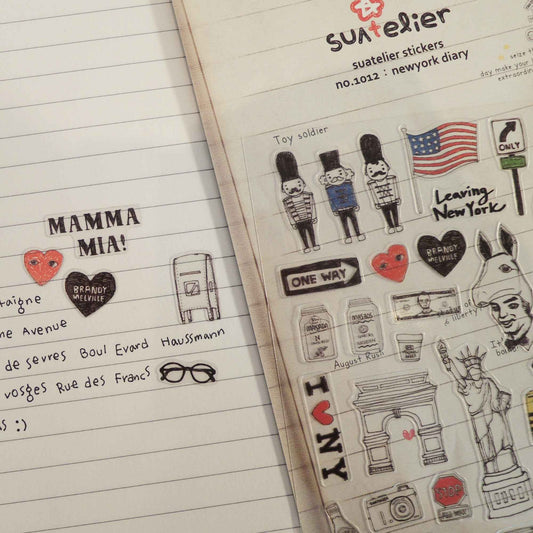 MAMMA
MIA!
BRANDY
MELVILLE
taigne
me Avenue
de sevres Boul Evard Haussmann
vosges Rue des Francs
s :)
suatelier
suatelier stickers
no.1012 : newyork diary
seize th
day make your
extraordin
Toy soldier
ONLY
Leaving
New York
ONE WAY
BRANDY
MELVILLE
statue of
a liberty
It'
August Rush
I ♥ NY
STOP